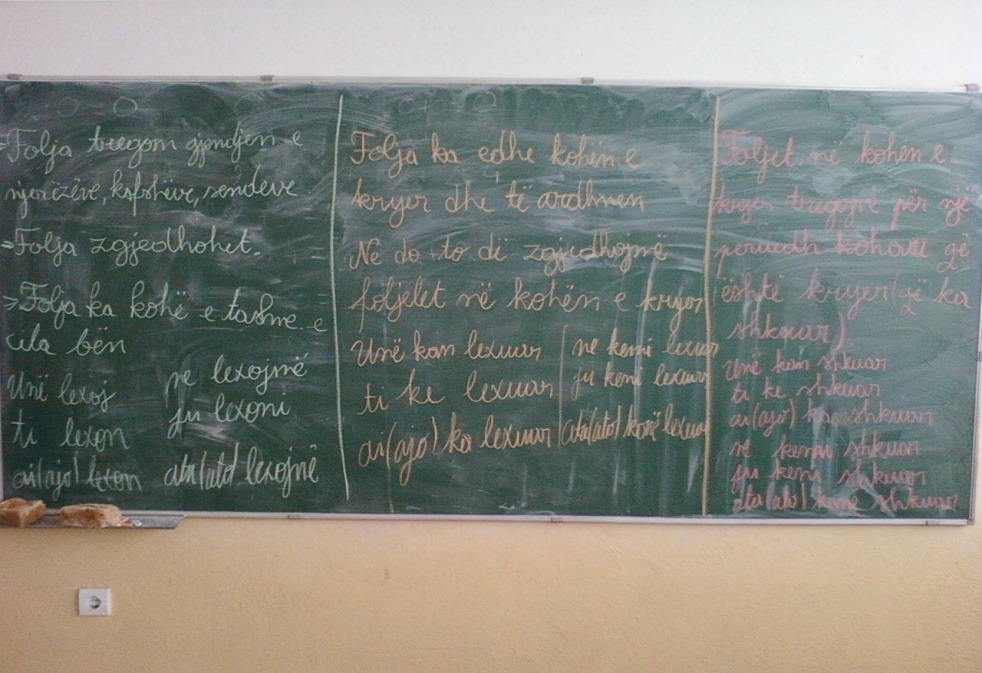 Folja tregon gjendjen e
njerëzëve, kafshëve, sendeve.
⇒Folja zgjedhohet.
⇒Folja ka kohë e tashme e
cila bën
Unë lexoj ne lexojmë
ti lexon ju lexoni
ai(ajo) lexon ata(ato) lexojnë
Folja ka edhe kohën e
kryer dhe të ardhmen
Ne do to di zgjedhojmë
foljelet në kohën e kryer
Unë kam lexuar ne kemi lexuar
ti ke lexuar ju keni lexuar
ai(ajo) ka lexuar ata(ato) kanë lexuar
Foljet në kohën e
kryer tregojnë për një
periudh kohore që
është kryer(që ka
shkuar)
unë kam shkuar
ti ke shkuar
ai(ajo) ka shkuar
ne kemi shkuar
ju keni shkuar
ata(ato) kanë shkuar